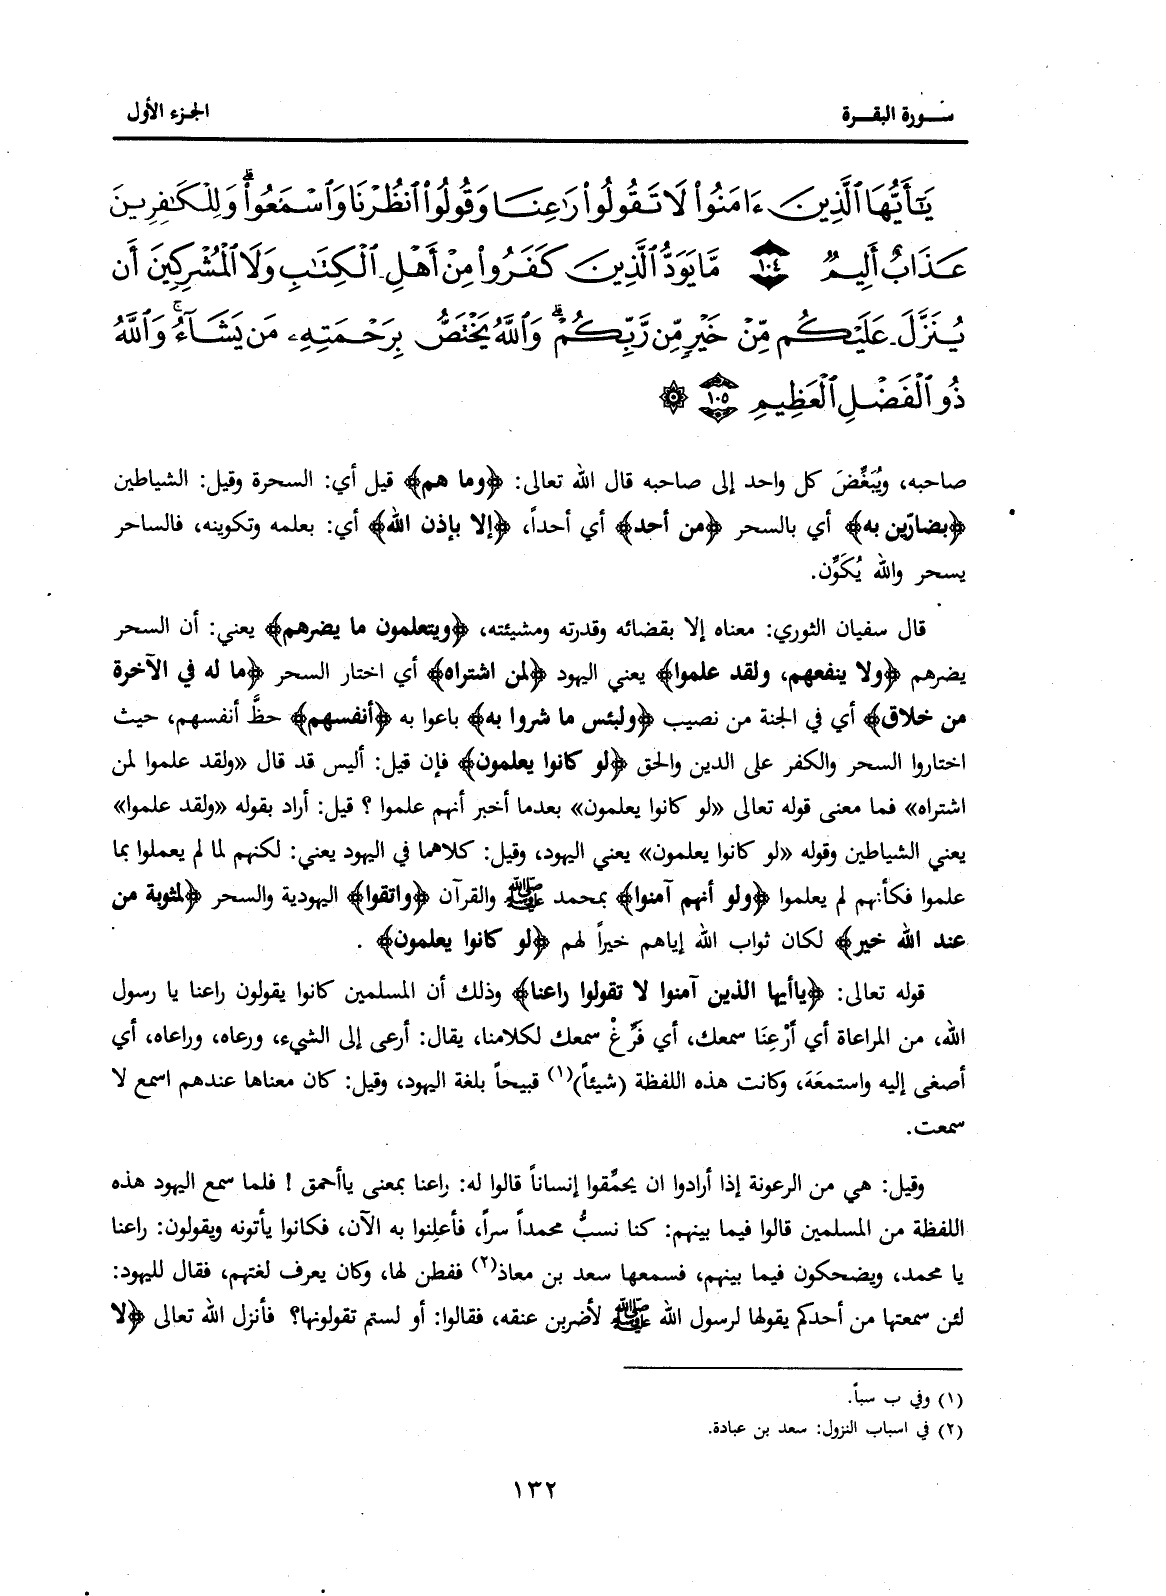 سورة البقرة
الجزء الأول
يَـٰٓأَيُّهَا ٱلَّذِينَ ءَامَنُواْ لَا تَقُولُواْ رَٰعِنَا وَقُولُواْ ٱنظُرْنَا وَٱسْمَعُواْۗ وَلِلْكَـٰفِرِينَ
عَذَابٌ أَلِيمٌ ١٠٤ مَّا يَوَدُّ ٱلَّذِينَ كَفَرُواْ مِنْ أَهْلِ ٱلْكِتَـٰبِ وَلَا ٱلْمُشْرِكِينَ أَن
يُنَزَّلَ عَلَيْكُم مِّنْ خَيْرٍ مِّن رَّبِّكُمْۗ وَٱللَّهُ يَخْتَصُّ بِرَحْمَتِهِۦ مَن يَشَآءُۚ وَٱللَّهُ
ذُو ٱلْفَضْلِ ٱلْعَظِيمِ ١٠٥ ۞
صاحبه، ويُبَغِّضَ كل واحد إلى صاحبه قال الله تعالى: ﴿وما هم﴾ قيل أي: السحرة وقيل: الشياطين
﴿بضارّين به﴾ أي بالسحر ﴿من أحد﴾ أي أحداً، ﴿إلا بإذن الله﴾ أي: بعلمه وتكوينه، فالساحر
يسحر والله يُكَوِّن.
قال سفيان الثوري: معناه إلا بقضائه وقدرته ومشيئته، ﴿ويتعلمون ما يضرهم﴾ يعني: أن السحر
يضرهم ﴿ولا ينفعهم، ولقد علموا﴾ يعني اليهود ﴿لمن اشتراه﴾ أي اختار السحر ﴿ما له في الآخرة
من خلاق﴾ أي في الجنة من نصيب ﴿ولبئس ما شروا به﴾ باعوا به ﴿أنفسهم﴾ حظَّ أنفسهم، حيث
اختاروا السحر والكفر على الدين والحق ﴿لو كانوا يعلمون﴾ فإن قيل: أليس قد قال «ولقد علموا لمن
اشتراه» فما معنى قوله تعالى «لو كانوا يعلمون» بعدما أخبر أنهم علموا ؟ قيل: أراد بقوله «ولقد علموا»
يعني الشياطين وقوله «لو كانوا يعلمون» يعني اليهود، وقيل: كلاهما في اليهود يعني: لكنهم لما لم يعملوا بما
علموا فكأنهم لم يعلموا ﴿ولو أنهم آمنوا﴾ بمحمد ﷺ والقرآن ﴿واتقوا﴾ اليهودية والسحر ﴿لمثوبة من
عند الله خير﴾ لكان ثواب الله إياهم خيراً لهم ﴿لو كانوا يعلمون﴾ .
قوله تعالى: ﴿ياأيها الذين آمنوا لا تقولوا راعنا﴾ وذلك أن المسلمين كانوا يقولون راعنا يا رسول
الله، من المراعاة أي أَرْعِنَا سمعك، أي فَرِّغْ سمعك لكلامنا، يقال: أرعى إلى الشيء، ورعاه، وراعاه، أي
أصغى إليه واستمعَهَ، وكانت هذه اللفظة (شيئاً)(١) قبيحاً بلغة اليهود، وقيل: كان معناها عندهم اسمع لا
سمعت.
وقيل: هي من الرعونة إذا أرادوا ان يحمِّقوا إنساناً قالوا له: راعنا بمعنى ياأحمق ! فلما سمع اليهود هذه
اللفظة من المسلمين قالوا فيما بينهم: كنا نسبُّ محمداً سراً، فأعلِنوا به الآن، فكانوا يأتونه ويقولون: راعنا
يا محمد، ويضحكون فيما بينهم، فسمعها سعد بن معاذ(٢) ففطن لها، وكان يعرف لغتهم، فقال لليهود:
لئن سمعتها من أحدكم يقولها لرسول الله ﷺ لأضربن عنقه، فقالوا: أو لستم تقولونها؟ فأنزل الله تعالى ﴿لا
(١) وفي ب سباً.
(٢) في اسباب النزول: سعد بن عبادة.
١٣٢